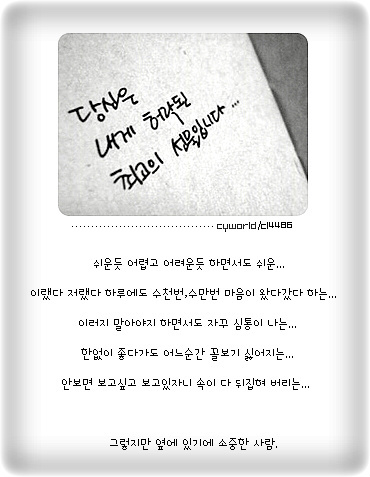 당신은
내게 허락된
최고의 선물입니다...
cyworld/cl4486
쉬운듯 어렵고 어려운듯 하면서도 쉬운...
이랬다 저랬다 하루에도 수천번,수만번 마음이 왔다갔다 하는...
이러지 말아야지 하면서도 자꾸 심통이 나는...
한없이 좋다가도 어느순간 꼴보기 싫어지는...
안보면 보고싶고 보고있자니 속이 다 뒤집혀 버리는...
그렇지만 옆에 있기에 소중한 사람.